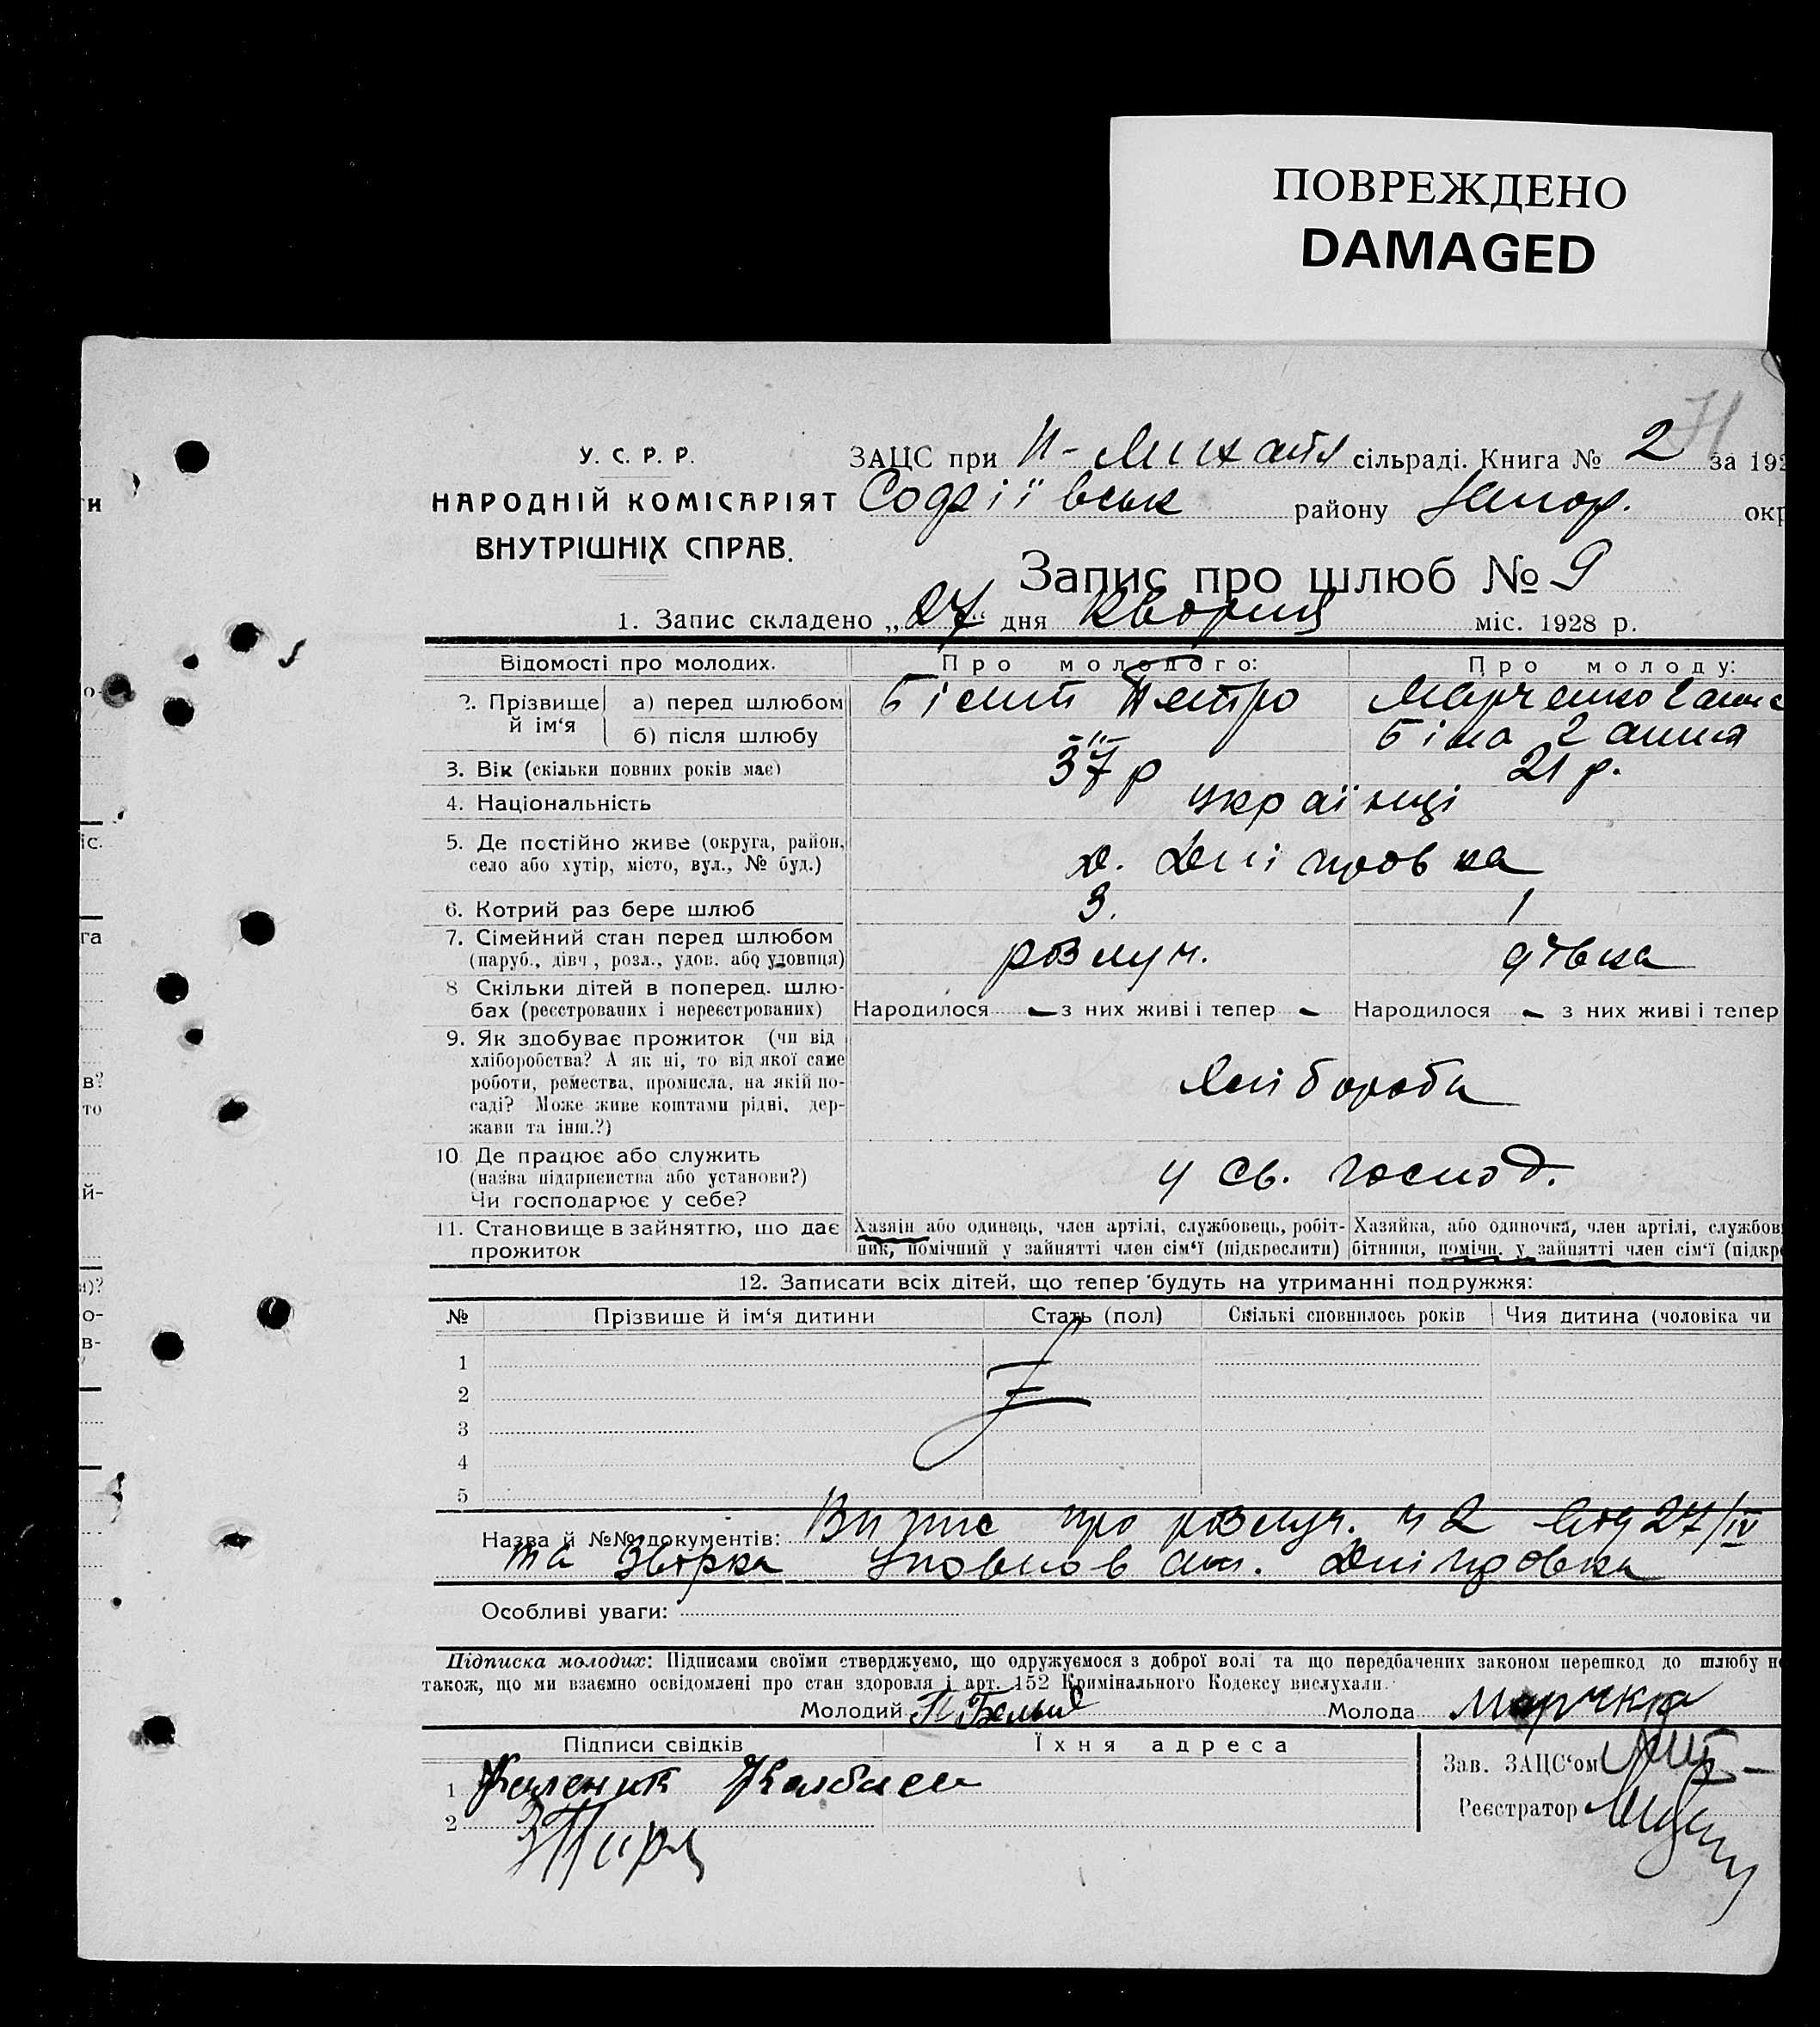 ПОВРЕЖДЕНО
DAMAGED
У. С. Р. Р.
НАРОДНІЙ КОМІСАРІЯТ
ВНУТРІШНІХ СПРАВ.
ЗАЦС при Н-Михайл сільраді. Книга № 2 за 192
Софіївськ району Запор. окр
Запис про шлюб № 9
1. Запис складено „27“ дня Квітня міс. 1928 р.
Відомості про молодих. Про молодого: Про молоду:
2. Прізвище й ім‘я а) перед шлюбом Білий Петро Марченко Ганна
б) після шлюбу -"- Біла Ганна
3. Вік (скільки повних років має) 37 р 21 р.
4. Національність українці
5. Де постійно живе (округа, район, село або хутір, місто, вул., № буд.) х. Дніпровка
6. Котрий раз бере шлюб 3. 1
7. Сімейний стан перед шлюбом розлуч. дівка
(паруб., дівч., розл., удов. або удовиця)
8 Скільки дітей в поперед. шлю-
бах (реєстрованих і нереєстрованих) Народилося - з них живі і тепер - Народилося - з них живі і тепер
9. Як здобуває прожиток (чи від
хліборобства? А як ні, то від якої саме
роботи, ремества, промисла, на якій по-
саді? Може живе коштами рідні, дер-
жави та інш.?)
Хлібороби
10 Де працює або служить
(назва підприєнства або установи?)
Чи господарює у себе?
у св. господ.
11. Становище в зайняттю, що дає
прожиток
Хазяїн або одинець, член артілі, службовець, робіт-
ник, помічний у зайнятті член сім‘ї (підкреслити)
Хазяйка, або одиночка, член артілі, службов
бітниця, помічн. у зайнятті член сім‘ї (підкре
12. Записати всіх дітей, що тепер будуть на утриманні подружжя:
№ Прізвише й ім‘я дитини Стать (пол) Скількі сповнилось років Чия дитина (чоловіка чи
1
2
3
4
5
Назва й №№ документів: Випис про розлуч. ч 2 від 27/IV
та Звірка Уповнов ал. Дніпровка
Особливі уваги:
Підписка молодих: Підписами своїми стверджуємо, що одружуємося з доброї волі та що передбачених законом перешкод до шлюбу не
також, що ми взаємно освідомлені про стан здоровля і арт. 152 Кримінального Кодексу вислухали.
Молодий П Белый Молода
Підписи свідків Їхня адреса
1
2
Зав. ЗАЦС‘ом
Реєстратор